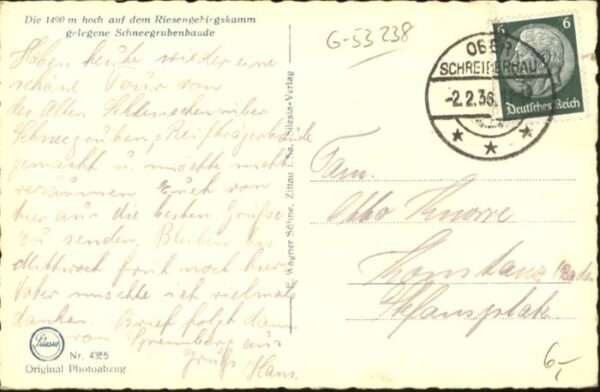 Die 1490 m hoch auf dem Riesengebirgskamm
gelegene Schneegrubenbaude
G-53 238
Haben heute wieder eine
schöne Tour von
der Alten Schlesischen über
Schneegruben, Reifträgerbaude
gemacht u. möchte nicht
versäumen Euch von
hier aus die besten Grüsse
zu senden. Bleiben bis
Mittwoch früh noch hier
Vater möchte ich vielmals
danken. Brief folgt dann
von Spremberg aus
Gruß Hans.
Silesia
Nr. 4385
Original Photoabzug
E. Wagner Söhne, Zittau i. Sa. Silesia-Verlag
6
6
Deutsches Reich
OBER
SCHREIBERHAU
-2.2.36.
Fam.
Otto Knorre
Konstanz Baden
6,-